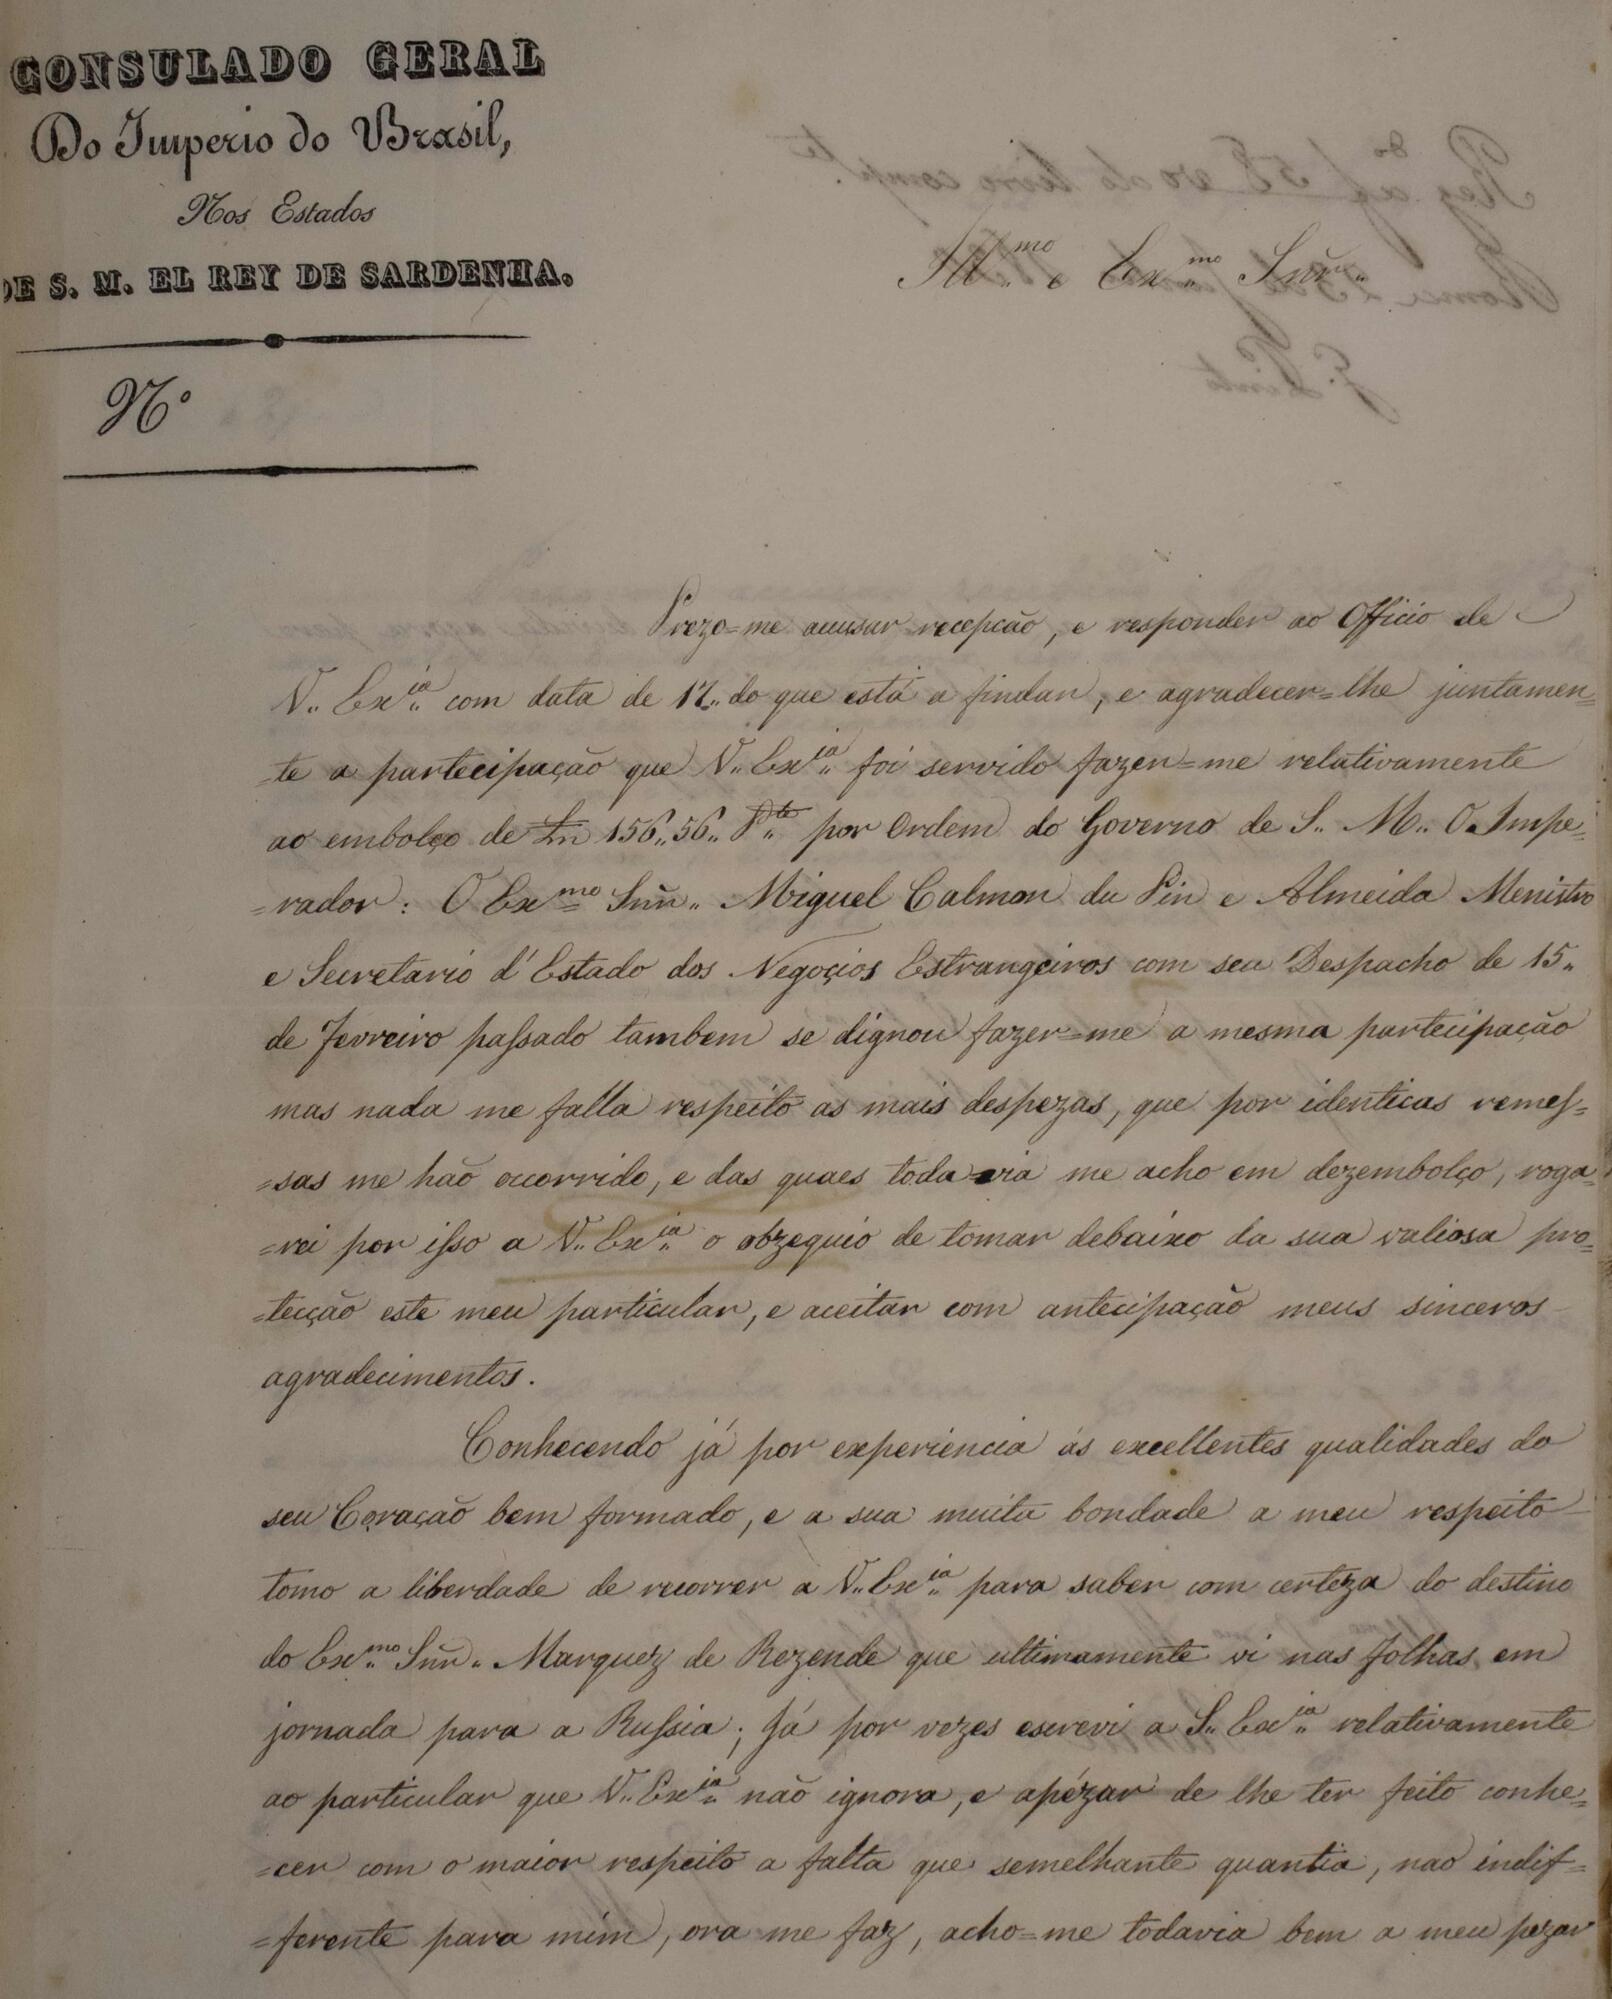 CONSULADO GERAL
Do Imperio do Brasil,
Nos Estados
DE S. M. EL REY DE SARDENHA.
N.º
Ill.mo e Ex.mo Snr.
Prezo=me accusar recepcão, e responder ao Officio de
V.. Ex.ia com data de 17.. do que está a findar, e agradecer=lhe juntamen=
=te a partecipação que V.. Ex.ia foi servido fazer=me relativamente
ao embolço de Ln 156..56.. P.te por Ordem do Governo de S.. M.. O Impe=
=rador: O Ex.mo Snr.. Miguel Calmon du Pin e Almeida Menistro
e Secretario d'Estado dos Negoçios Estrangeiros com seu Despacho de 15..
de Fevreiro passado tambem se dignou fazer=me a mesma partecipação
mas nada me falla respeito as mais despezas, que por identicas remes=
=sas me hão occorrido, e das quaes toda=via me acho em dezembolço, roga=
=rei por isso a V.. Ex.ia o obzequio de tomar debaixo da sua valiosa pro=
=tecção este meu particular, e aceitar com antecipação meus sinceros
agradecimentos.
Conhecendo já por experiencia ás excellentes qualidades do
seu Coração bem formado, e a sua muita bondade a meu respeito
tomo a liberdade de recorrer a V.. Ex.ia para saber com certeza do destino
do Ex.mo Snr.. Marquez de Rezende que ultimamente vi nas folhas em
jornada para a Russia; Já por vezes escrevi a S.. Ex.ia relativamente
ao particular que V.. Ex.ia não ignora, e apézar de lhe ter feito conhe=
=cer com o maior respeito a falta que semelhante quantia, nao indif=
=ferente para mim, ora me faz, acho=me todavia bem a meu pezar